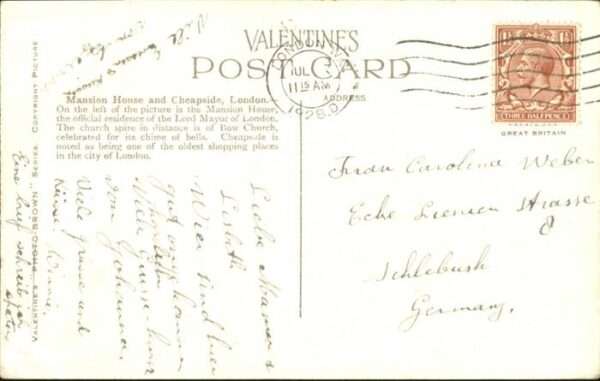 VALENTINES
POST CARD
ADDRESS
LONDON
JUL
11 15 AM
1926
THREE HALFPENCE
GREAT BRITAIN
Mansion House and Cheapside, London.—
On the left of the picture is the Mansion House,
the official residence of the Lord Mayor of London.
The church spire in distance is of Bow Church,
celebrated for its chime of bells. Cheapside is
noted as being one of the oldest shopping places
in the city of London.
VALENTINE'S "PHOTO-BROWN" SERIES. COPYRIGHT PICTURE
Liebe Mama &
Lisbeth
Wier sind hier
gut
Viele Grüsse
vom Johannes
Viele grüsse und
Küsse
Eine brief schreib
später
Frau Carolina Weber
Strasse
8
Schlebush
Germany.